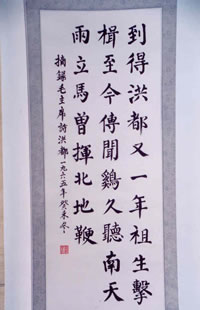 到得洪都又一年祖生擊
楫至今傳聞鷄久聽南天
雨立馬曾揮北地鞭
摘錄毛主席詩洪都一九六五年癸未冬